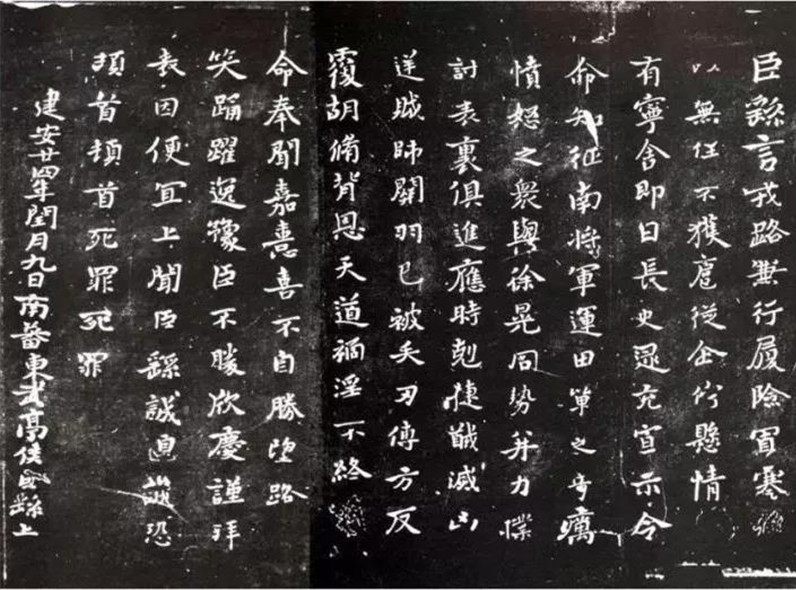 臣繇言戎路兼行履險冒寒
以無任不獲扈從企佇懸情
有寧舍即日長史逯充宣示令
命知征南將軍運田單之奇癘
憤怒之衆與徐晃同勢并力撲
討表裏俱進應時剋捷馘滅凶
逆賊帥關羽已被矢刃傅方反
覆胡脩背恩天道禍淫不終
命奉聞嘉憙喜不自勝望路
笑踊躍逸豫臣不勝欣慶謹拜
表因便宜上聞臣繇誠惶誠恐
頓首頓首死罪死罪
建安廿四年閏月九日南蕃東武亭侯臣繇上